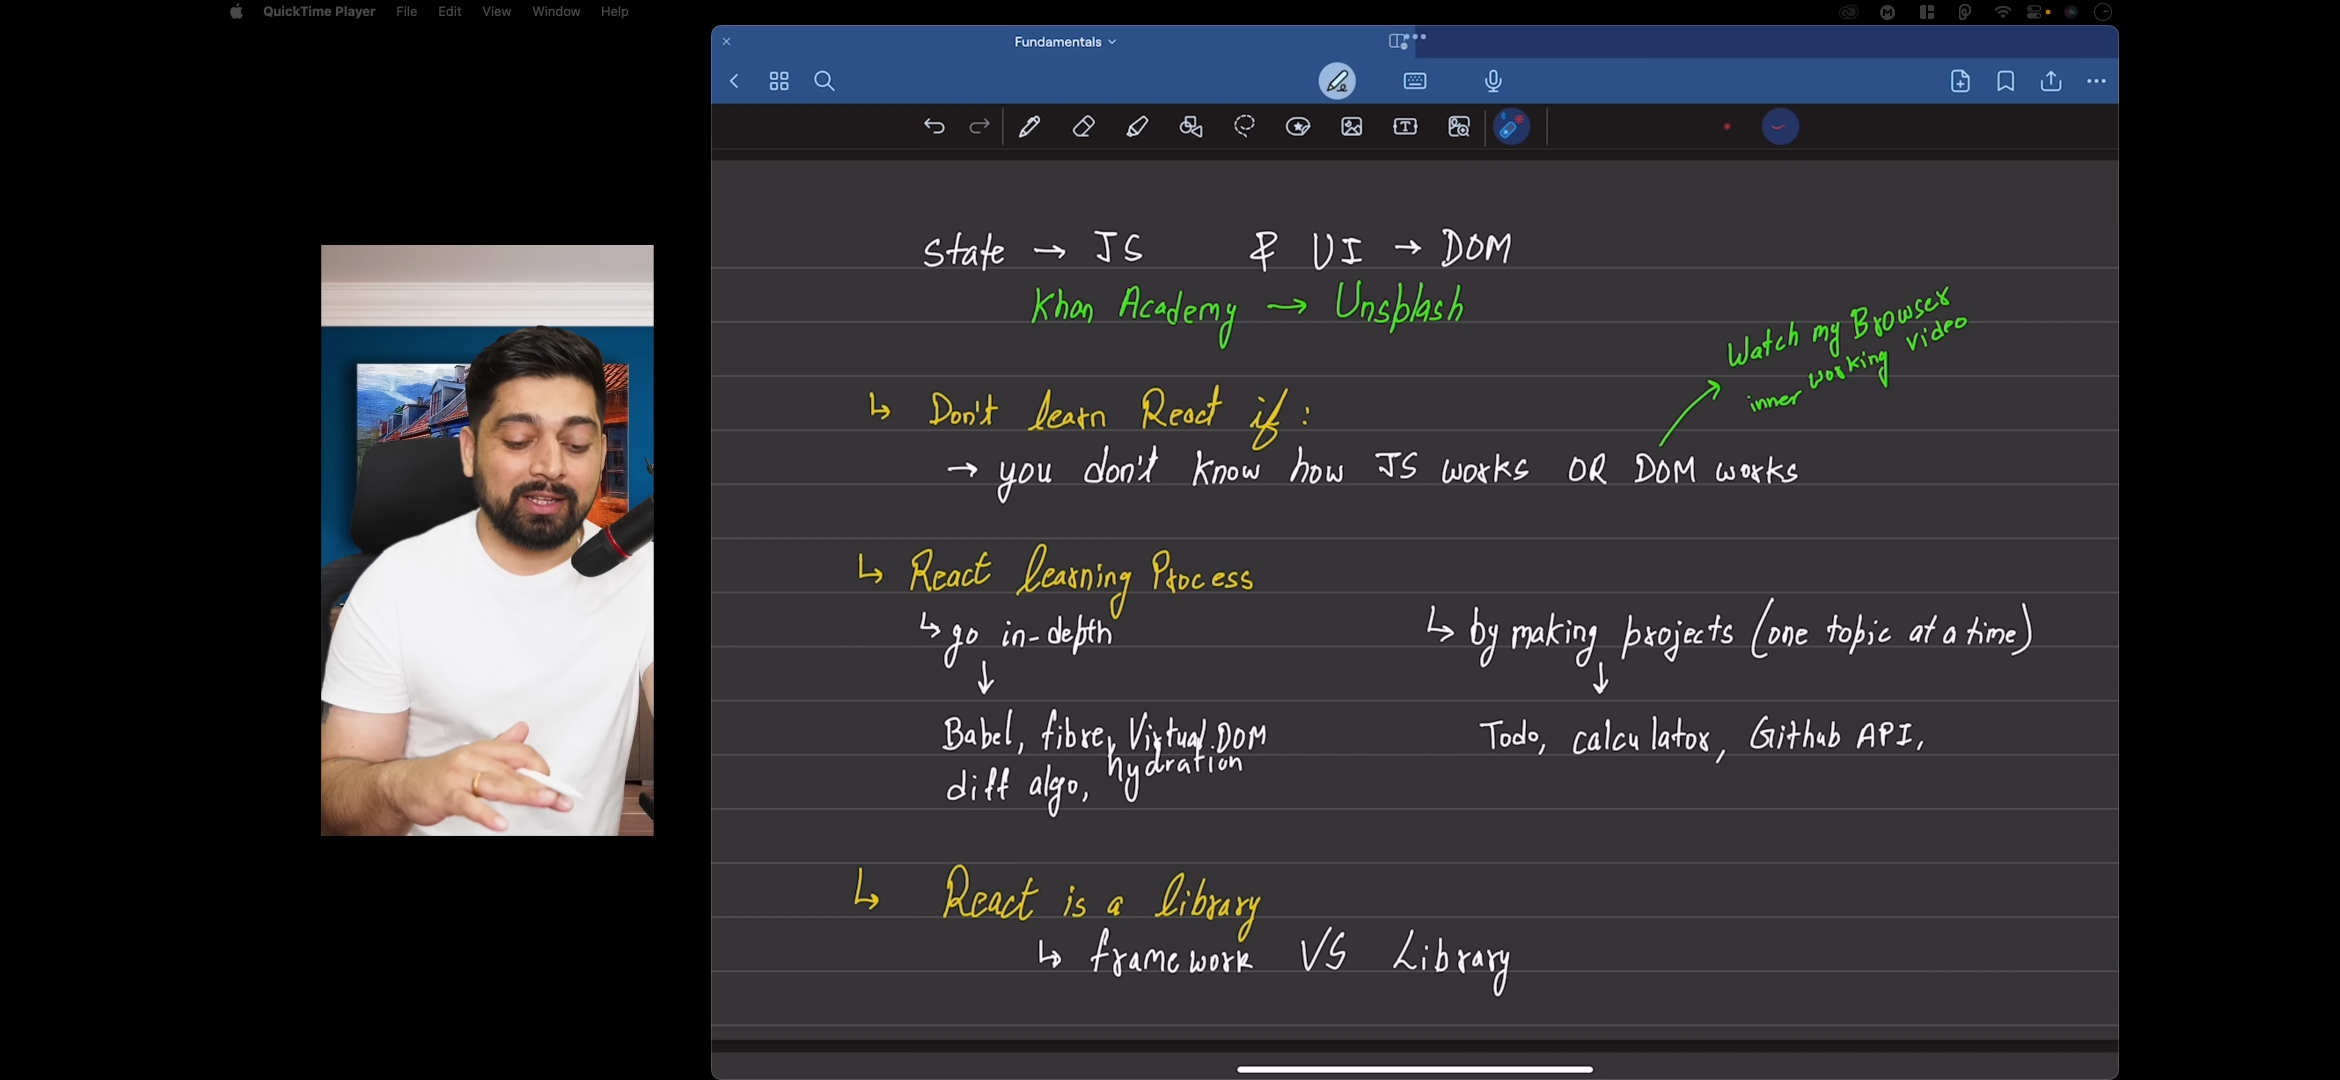 QuickTime Player File Edit View Window Help
Fundamentals
State → JS & UI → DOM
Khan Academy → Unsplash
Watch my Browser
inner working video
↳ Don't learn React if :
→ you don't know how JS works OR DOM works
↳ React learning Process
↳ go in-depth
↳ by making projects (one topic at a time)
↓
↓
Babel, fibre, Virtual DOM
diff algo, hydration
Todo, calculator, Github API,
↳ React is a library
↳ framework VS Library